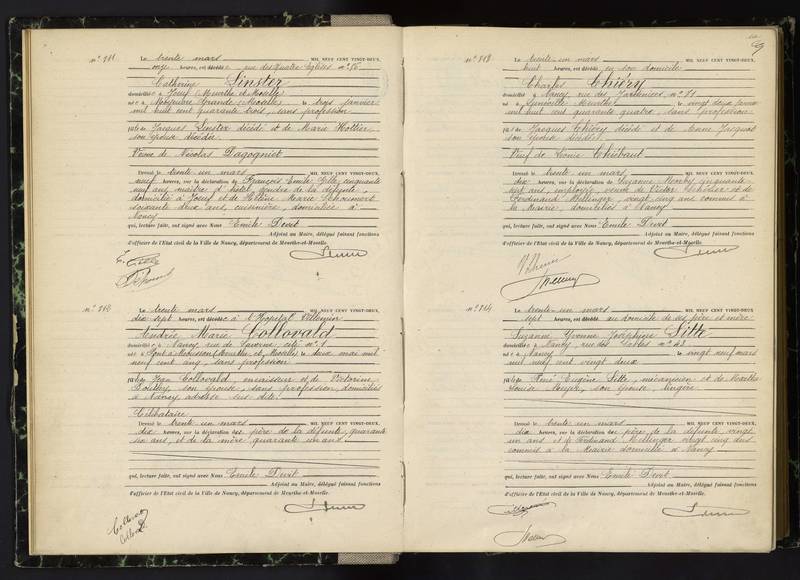 n° 811 Le trente mars MIL NEUF CENT VINGT-DEUX,
onze heures, est décédée rue des Quatre Eglises n° 80
Catherine Sinster
domiciliée à Joeuf (Meurthe et Moselle)
née à Grande (Moselle) le trois janvier
mil huit cent quarante trois, sans profession
fille de Jacques Sinster décédé et de Marie Hollier
son épouse décédée
Veuve de Nicolas Dagogniet
Dressé le trente un mars MIL NEUF CENT VINGT-DEUX,
neuf heures, sur la déclaration de François Emile Gille, cinquante
neuf ans, maître d'hôtel, gendre de la défunte
domicilié à Joeuf et de Hélène Marie
soixante deux ans, cuisinière, domiciliée à
Nancy
qui, lecture faite, ont signé avec Nous Emile Devit
Adjoint au Maire, délégué faisant fonctions
d'officier de l'Etat civil de la Ville de Nancy, département de Meurthe-et-Moselle.
E. Gille
n° 812 Le trente mars MIL NEUF CENT VINGT-DEUX,
dix sept heures, est décédée à l'Hôpital Villemin
Andrée Marie Collovald
domiciliée à Nancy, rue de cité n° 1
née à Pont à Mousson (Meurthe et Moselle) le deux mai mil
neuf cent un, sans profession
fille de Jean Collovald, encaisseur et de Victorine
son épouse, sans profession, domiciliés
à Nancy adresse sus dite
Célibataire
Dressé le trente un mars MIL NEUF CENT VINGT-DEUX,
dix heures, sur la déclaration du père de la défunte, quarante
six ans, et de la mère quarante un ans
qui, lecture faite, ont signé avec Nous Emile Devit
Adjoint au Maire, délégué faisant fonctions
d'officier de l'Etat civil de la Ville de Nancy, département de Meurthe-et-Moselle.
Collovald
Collovald
n° 813 Le trente un mars MIL NEUF CENT VINGT-DEUX,
huit heures, est décédé en son domicile
Charles Thiéry
domicilié à Nancy, rue des Jardiniers n° 81
né à Lunéville Meurthe le vingt deux
mil huit cent quarante quatre, sans profession
fils de Jacques Thiéry décédé et de Anne Jacquot
son épouse décédée
Veuf de Louise Thiébaut
Dressé le trente un mars MIL NEUF CENT VINGT-DEUX,
dix heures, sur la déclaration de Suzanne cinquante
sept ans, employée, veuve de Victor et de
Ferdinand Mellinger, vingt cinq ans commis à
la Mairie, domiciliés à Nancy
qui, lecture faite, ont signé avec Nous Emile Devit
Adjoint au Maire, délégué faisant fonctions
d'officier de l'Etat civil de la Ville de Nancy, département de Meurthe-et-Moselle.
n° 814 Le trente un mars MIL NEUF CENT VINGT-DEUX,
sept heures, est décédée au domicile de ses père et mère
Suzanne Yvonne Joséphine Sitte
domiciliée à Nancy, rue des n° 43
née à Nancy le vingt neuf mars
mil neuf cent vingt deux
fille de René Eugène Sitte, mécanicien et de Marthe
Louise son épouse, lingère
Dressé le trente un mars MIL NEUF CENT VINGT-DEUX,
dix heures, sur la déclaration du père de la défunte, vingt
un ans et de Ferdinand Mellinger vingt cinq ans
commis à la Mairie domiciliés à Nancy
qui, lecture faite, ont signé avec Nous Emile Devit
Adjoint au Maire, délégué faisant fonctions
d'officier de l'Etat civil de la Ville de Nancy, département de Meurthe-et-Moselle.